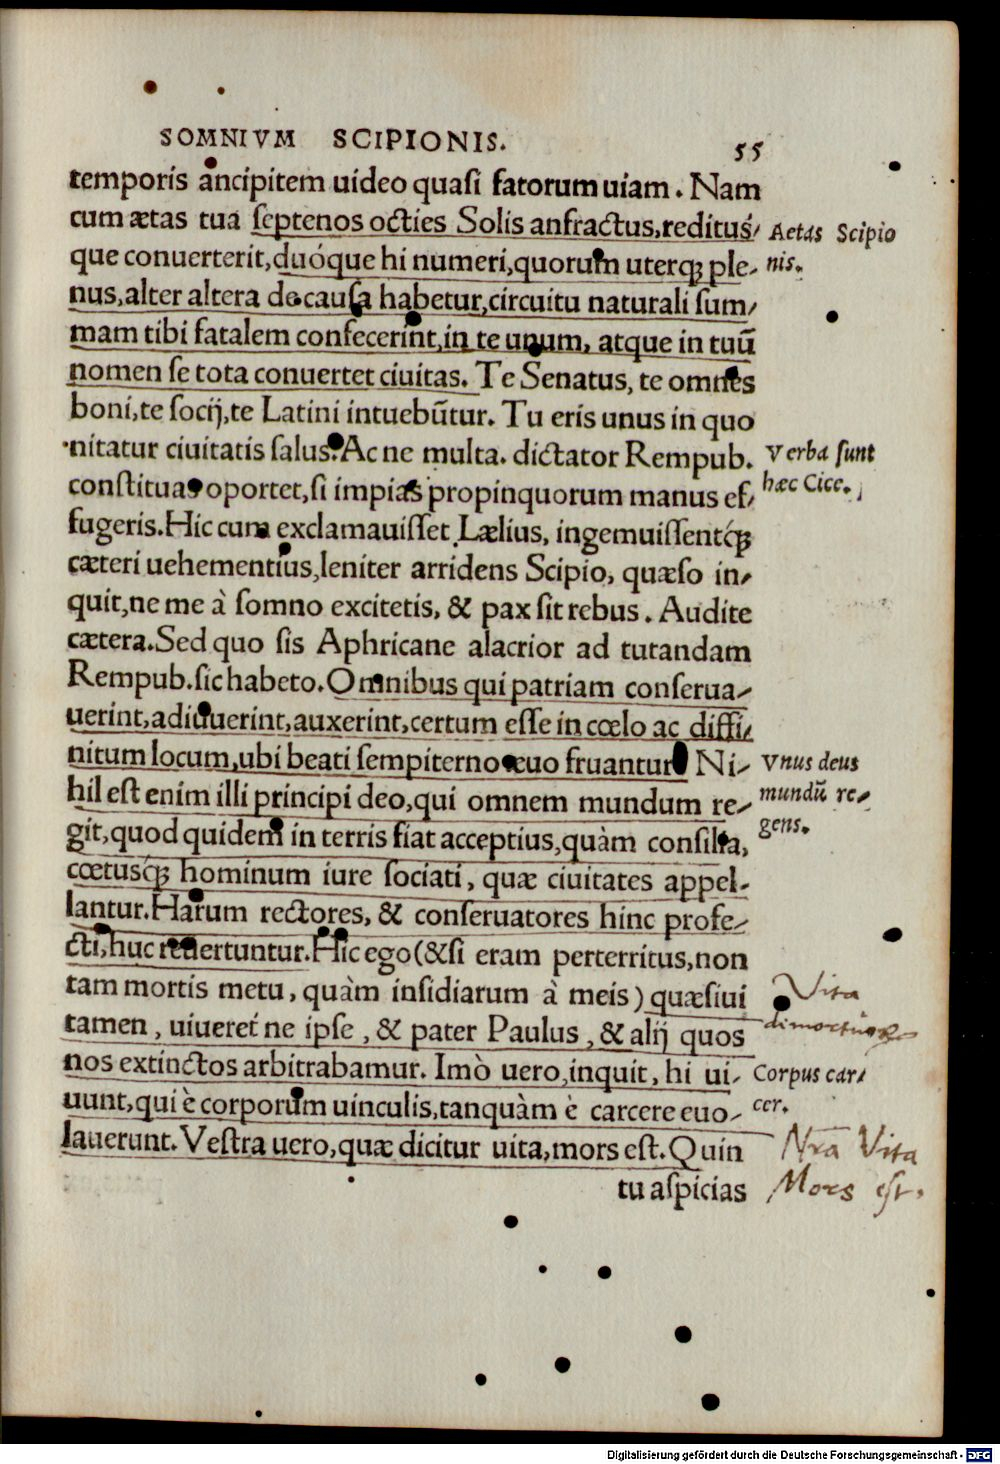 SOMNIVM SCIPIONIS. 55
temporis ancipitem uideo quasi fatorum uiam. Nam
cum ætas tua septenos octies Solis anfractus, reditus/
que conuerterit, duóque hi numeri, quorum uterqꝫ ple/
nus, alter altera de causa habetur, circuitu naturali sum/
mam tibi fatalem confecerint, in te unum, atque in tuũ
nomen se tota conuertet ciuitas. Te Senatus, te omnes
boni, te socij, te Latini intuebũtur. Tu eris unus in quo
nitatur ciuitatis salus. Ac ne multa. dictator Rempub.
constituas oportet, si impias propinquorum manus ef/
fugeris. Hic cum exclamauisset Lælius, ingemuissentq́ꝫ
cæteri uehementius, leniter arridens Scipio, quæso in/
quit, ne me à somno excitetis, & pax sit rebus. Audite
cætera. Sed quo sis Aphricane alacrior ad tutandam
Rempub. sic habeto. Omnibus qui patriam conserua/
uerint, adiuuerint, auxerint, certum esse in cœlo ac diffi/
nitum locum, ubi beati sempiterno æuo fruantur. Ni/
hil est enim illi principi deo, qui omnem mundum re/
git, quod quidem in terris fiat acceptius, quàm consilia,
cœtusq́ꝫ hominum iure sociati, quæ ciuitates appel/
lantur. Harum rectores, & conseruatores hinc profe/
cti, huc reuertuntur. Hic ego (& si eram perterritus, non
tam mortis metu, quàm insidiarum à meis) quæsiui
tamen, uiueret ne ipse, & pater Paulus, & alij quos
nos extinctos arbitrabamur. Imò uero, inquit, hi ui/
uunt, qui è corporum uinculis, tanquàm è carcere euo/
lauerunt. Vestra uero, quæ dicitur uita, mors est. Quin
tu aspicias
Aetas Scipio
nis.
Verba sunt
hæc Cice.
Vnus deus
mundũ re/
gens.
Vita
Corpus car/
cer.
Nr̄a Vita
Mors est.
Digitalisierung gefördert durch die Deutsche Forschungsgemeinschaft - DFG